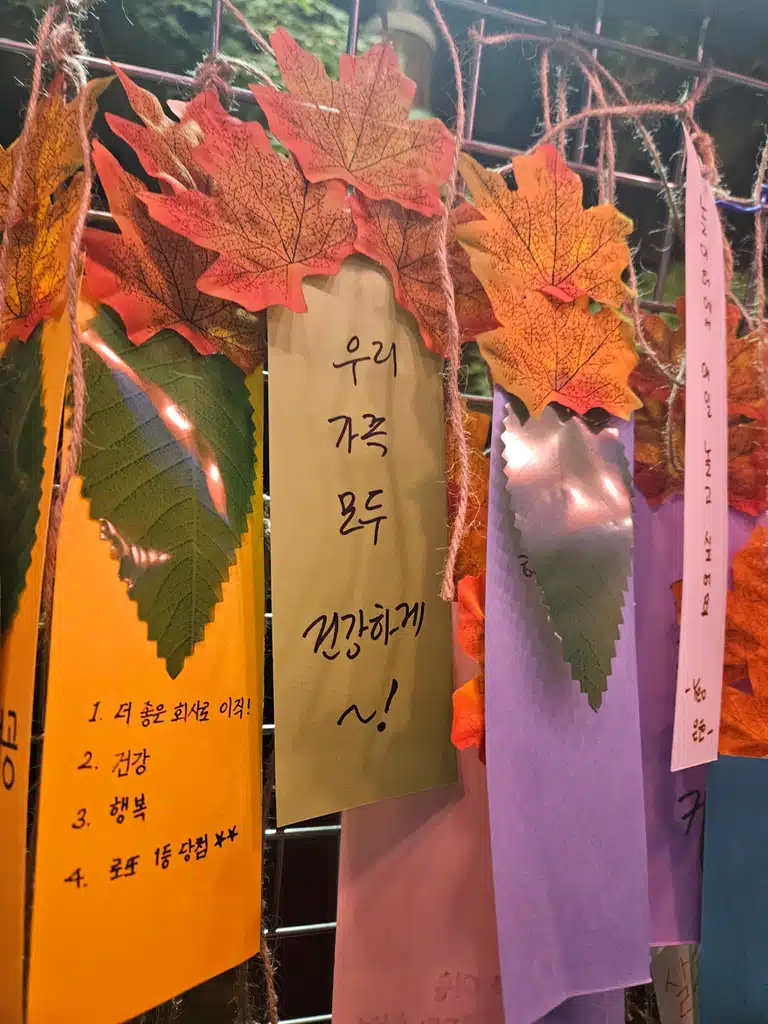 1. 더 좋은 회사로 이직!
2. 건강
3. 행복
4. 로또 1등 당첨 **
우리
가족
모두
건강하게
~!
매일 놀고 싶어요